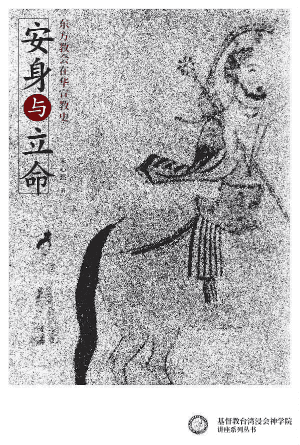 安身与立命
东方教会在华宣教史
基督教台湾浸会神学院
讲座系列丛书